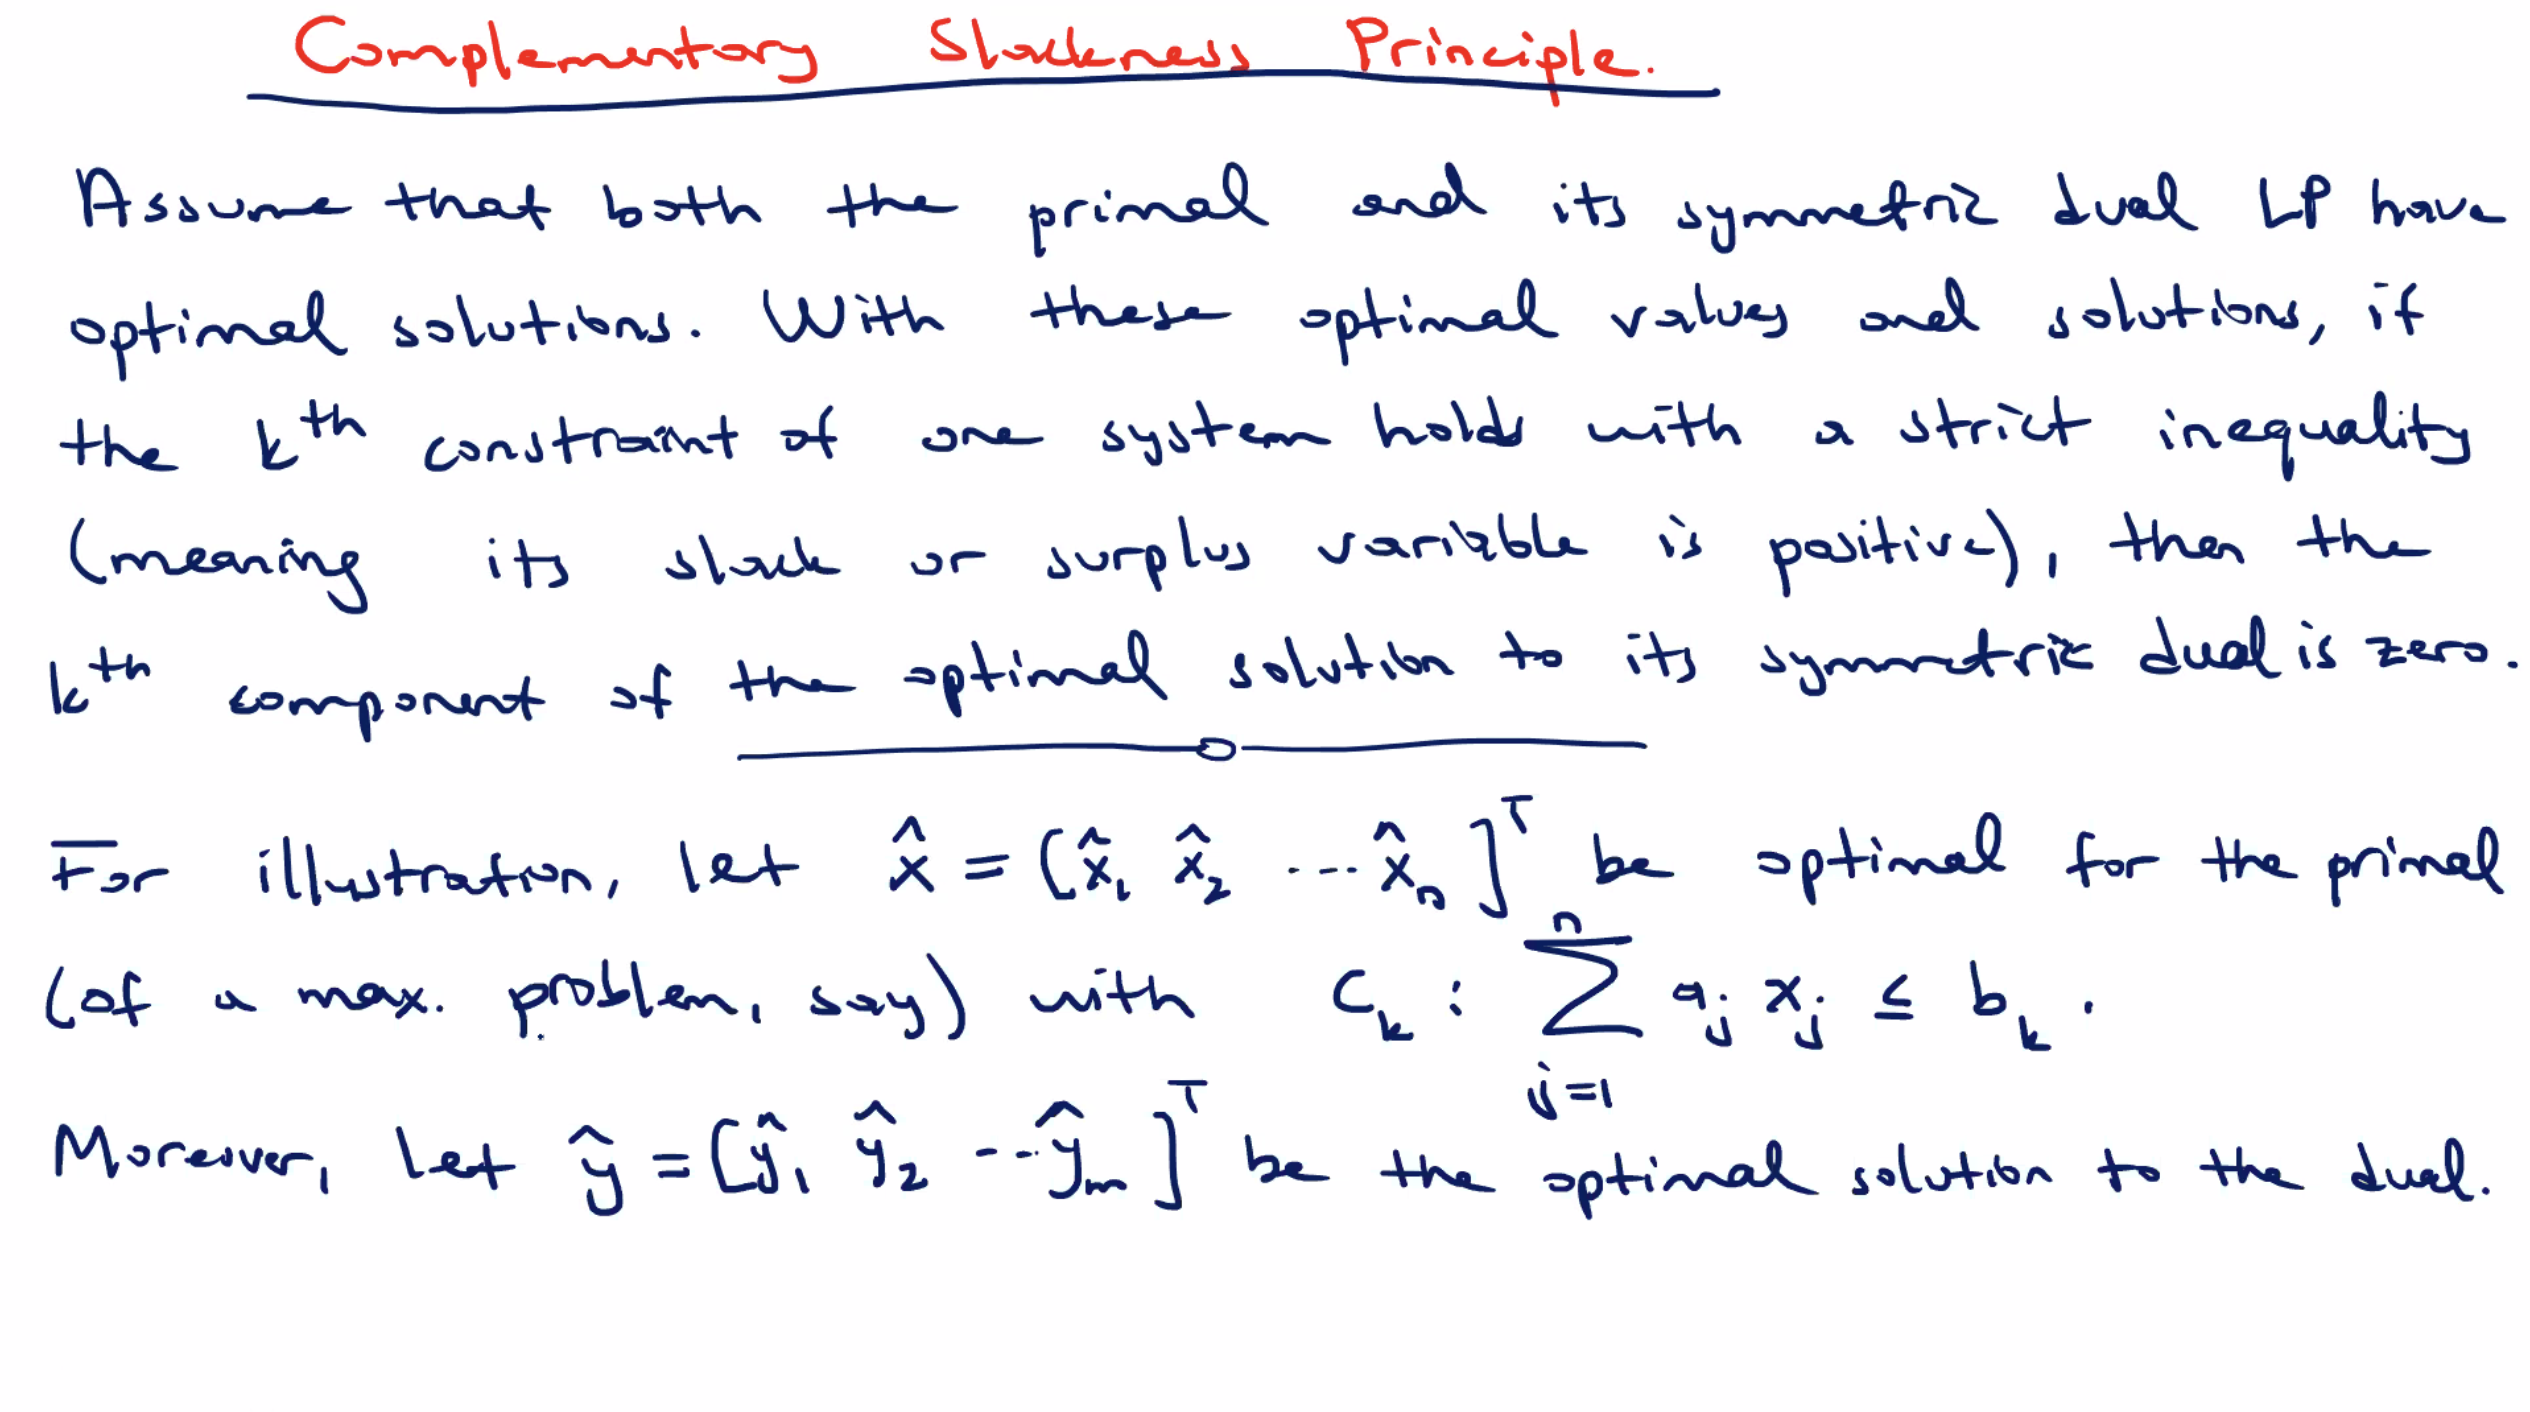 Complementary Slackness Principle.
Assume that both the primal and its symmetric dual LP have
optimal solutions. With these optimal values and solutions, if
the kᵗʰ constraint of one system holds with a strict inequality
(meaning its slack or surplus variable is positive), then the
kᵗʰ component of the optimal solution to its symmetric dual is zero.
For illustration, let x̂ = [x̂₁ x̂₂ ... x̂ₙ]ᵀ be optimal for the primal
(of a max. problem, say) with Cₖ : ∑ⱼ₌₁ⁿ aⱼ xⱼ ≤ bₖ.
Moreover, let ŷ = [ŷ₁ ŷ₂ ... ŷₘ]ᵀ be the optimal solution to the dual.